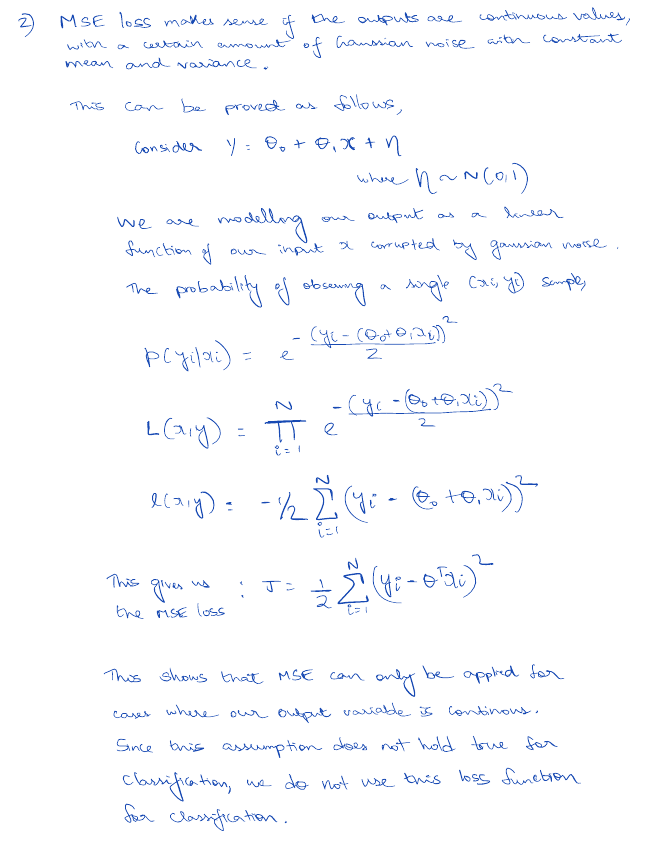 2) MSE loss makes sense if the outputs are continuous values,
with a certain amount of Gaussian noise with constant
mean and variance.
This can be proved as follows,
Consider y = θ₀ + θ₁x + η
where η ~ N(0,1)
We are modelling our output as a linear
function of our input x corrupted by gaussian noise.
The probability of observing a single (xi, yi) sample,
P(yi|xi) = e^{-(yi - (θ₀+θ₁xi))²/2}
L(x,y) = ∏_{i=1}^{N} e^{-(yi - (θ₀+θ₁xi))²/2}
l(x,y) = -1/2 ∑_{i=1}^{N} (yi - (θ₀+θ₁xi))²
This gives us : J = 1/2 ∑_{i=1}^{N} (yi - θᵀxi)²
the MSE loss
This shows that MSE can only be applied for
cases where our output variable is continous.
Since this assumption does not hold true for
classification, we do not use this loss function
for classification.